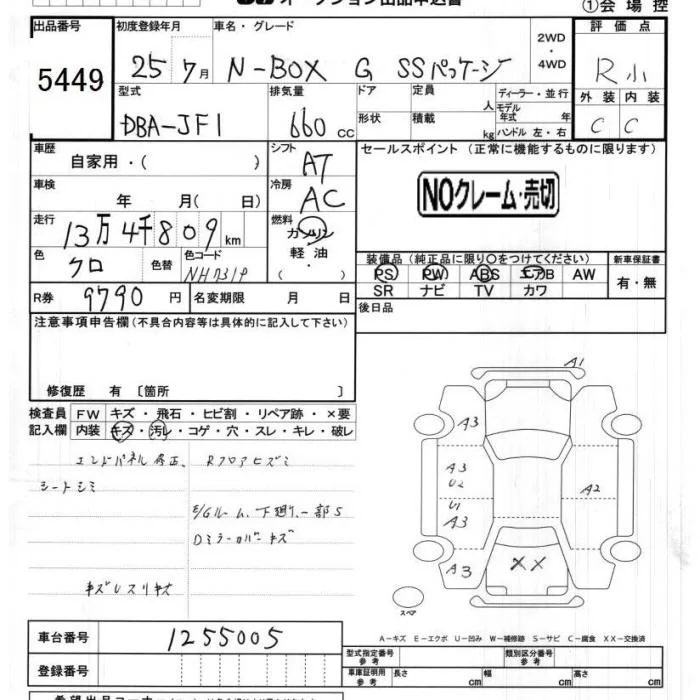 ①会場控
出品番号 初度登録年月 車名・グレード 評価点
5449 25 7月 N-BOX G SSパッケージ 2WD ・ 4WD R小
型式 排気量 ドア 定員 人 ディーラー・並行 外装 内装
DBA-JF1 660 cc 形状 積載 kg モデル年式 年 ハンドル 左・右 C C
車歴 自家用・( ) シフト AT セールスポイント (正常に機能するものに限ります)
車検 年 月( 日) 冷房 AC NOクレーム・売切
走行 13万4千809km 燃料 ガソリン
色 クロ 色替 色コード NH731P 軽油・( ) 装備品(純正品に限り○をつけてください) 新車保証書
PS PW ABS エアB AW 有・無
R券 9790円 名変期限 月 日 SR ナビ TV カワ
注意事項申告欄(不具合内容等は具体的に記入して下さい) 後日品
修復歴 有 〔箇所 〕
検査員 FW キズ・飛石・ヒビ割・リペア跡・×要
記入欄 内装 キズ・汚レ・コゲ・穴・スレ・キレ・破レ
エンドパネル修正、 Rフロアヒズミ
シートシミ
E/Gルーム、下廻り、一部S
Dミラーカバーキズ
キズレスリキズ
A1
A3
A3
U2
A2
U1
A3
A3
XX
スペア
A-キズ E-エクボ U-凹み W-補修跡 S-サビ C-腐食 XX-交換済
車台番号 1255005
型式指定番号 参考 類別区分番号 参考
登録番号 車庫証明用 参考 長さ cm 幅 cm 高さ cm